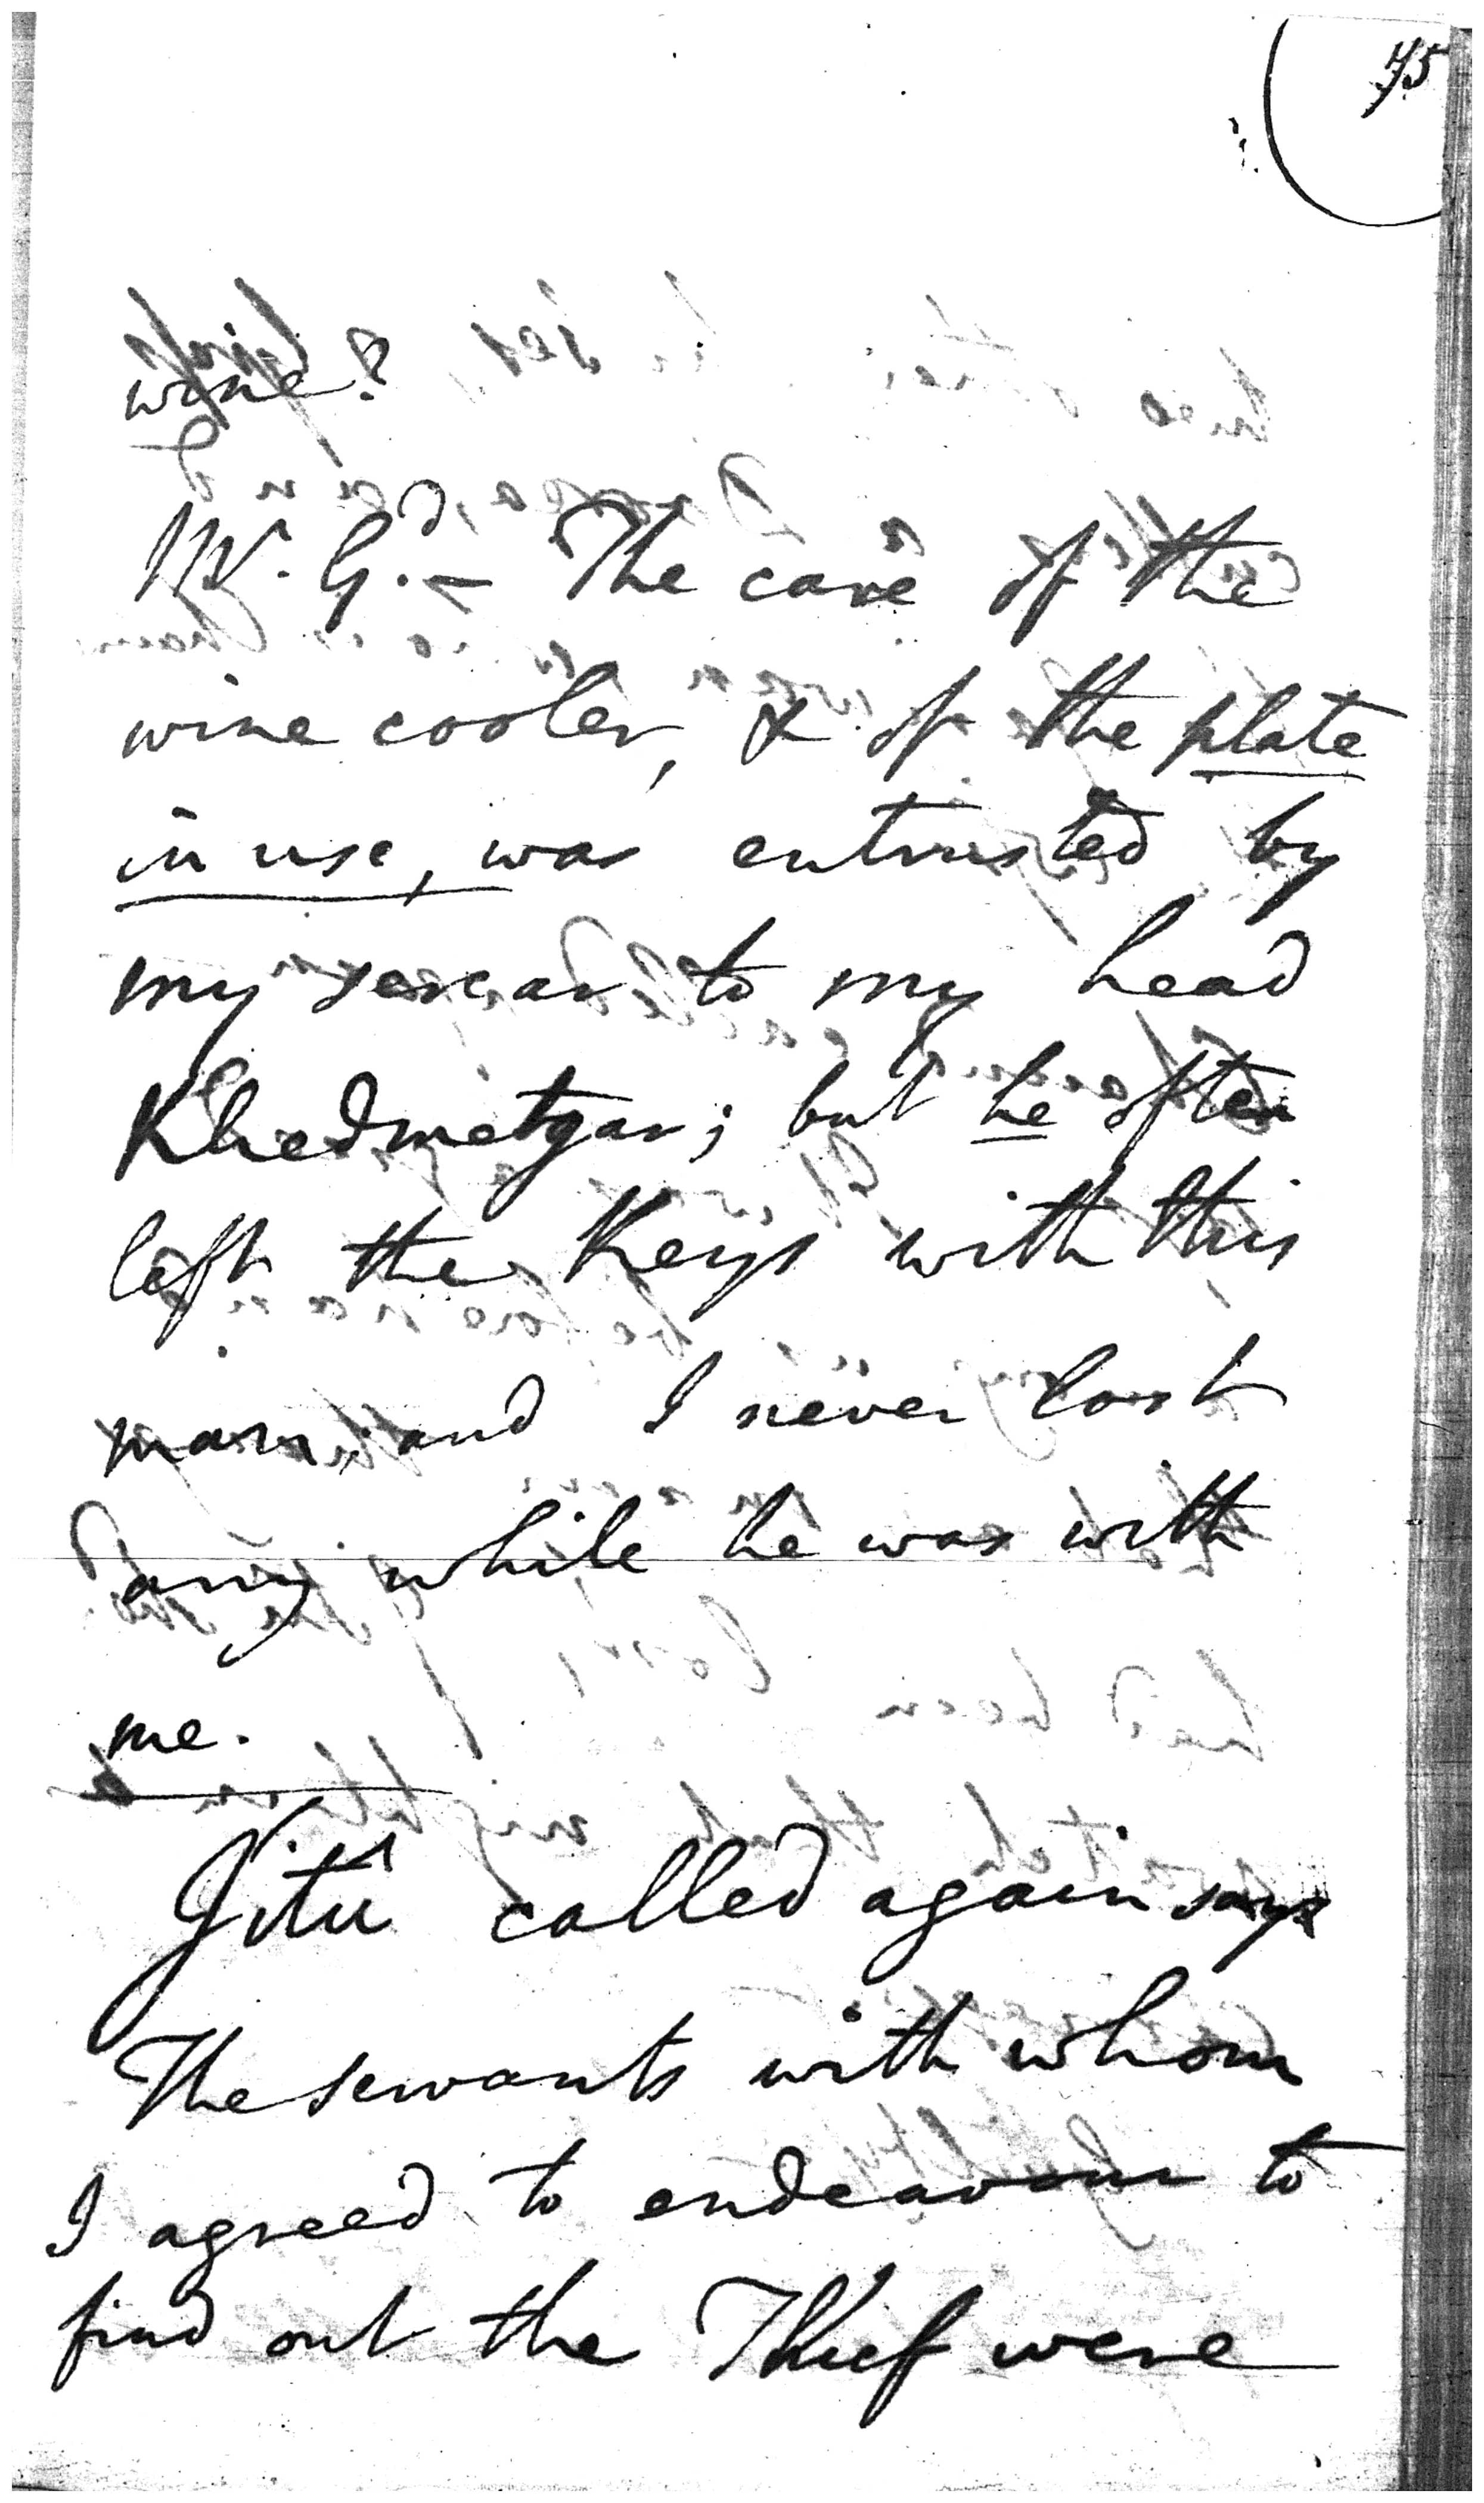 75
wine?
Mr. Gd. – The care of the
wine cooler, & of the plate
in use, was entrusted by
my sercar to my head
Khedmetgar; but he often
left the Keys with this
man, and I never lost
any while he was with
me.
Jitú called again says
The servants with whom
I agreed to endeavour to
find out the Thief were